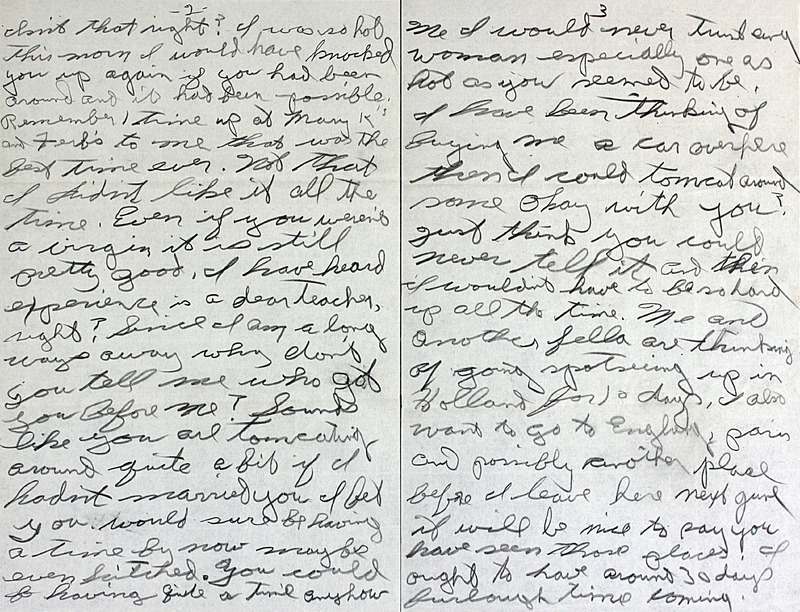 -2-
isn't that right? I was so hot
this morn I would have knocked
you up again if you had been
around and it had been possible.
Remember 1 time up at Mary K's
and Ferb's to me that was the
best time ever. Not that
I didn't like it all the
time. Even if you weren't
a virgin it is still
pretty good, I have heard
experience is a dear teacher,
right? Since I am a long
ways away why don't
you tell me who got
you before me? Sounds
like you are tomcating
around quite a bit if I
hadn't married you I bet
you would sure be having
a time by now maybe
even hitched. You could
be having quite a time anyhow
3
Me I would never trust any
woman especially one as
hot as you seemed to be.
I have been thinking of
buying me a car over here
then I could tomcat around
some okay with you?
Just think you could
never tell it and then
I wouldn't have to be so hard
up all the time. Me and
another fella are thinking
of going spotseing up in
Holland for 10 days, I also
want to go to England, paris
and possibly another place
before I leave here next June
it will be nice to say you
have seen those places! I
ought to have around 30 days
furlough time coming.